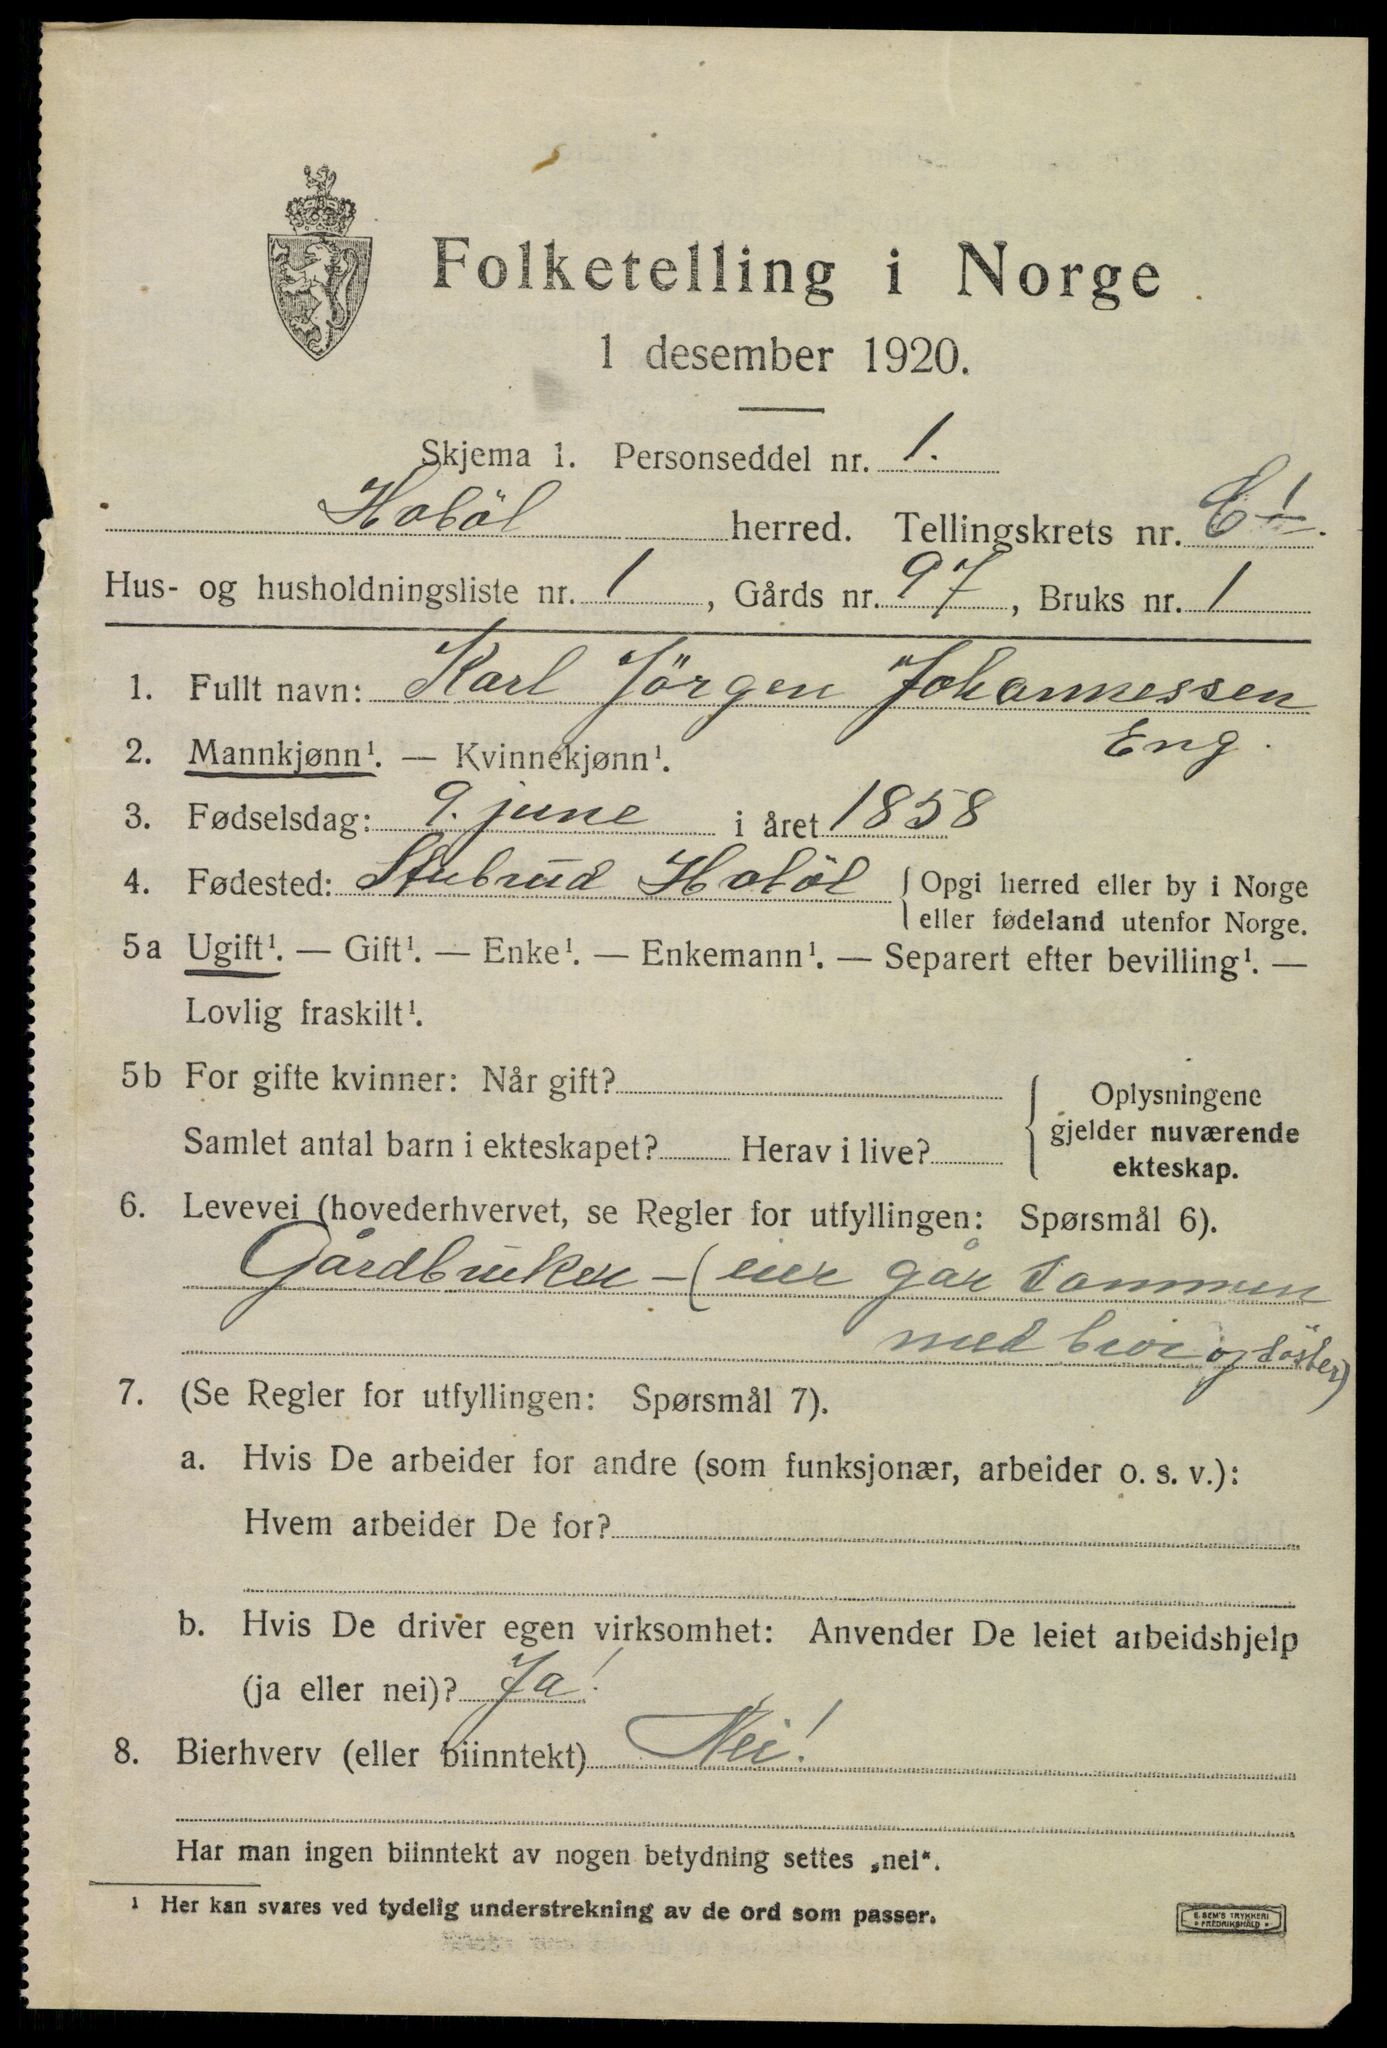 Folketelling i Norge
1 desember 1920.
Skjema 1. Personseddel nr. 1.
Hoböl herred. Tellingskrets nr. 6 1.
Hus- og husholdningsliste nr. 1, Gårds nr. 97, Bruks nr. 1
1. Fullt navn: Karl Jörgen Johannessen
Eng.
2. Mannkjønn¹. — Kvinnekjønn¹.
3. Fødselsdag: 9. june i året 1858
4. Fødested: Stubrud Hoböl { Opgi herred eller by i Norge
eller fødeland utenfor Norge.
5a Ugift¹. — Gift¹. — Enke¹. — Enkemann¹. — Separert efter bevilling¹. —
Lovlig fraskilt¹.
5b For gifte kvinner: Når gift?
Samlet antal barn i ekteskapet? Herav i live?
Oplysningene
gjelder nuværende
ekteskap.
6. Levevei (hovederhvervet, se Regler for utfyllingen: Spørsmål 6).
Gårdbruker – (eier går sammen
med bror og söster)
7. (Se Regler for utfyllingen: Spørsmål 7).
a. Hvis De arbeider for andre (som funksjonær, arbeider o. s. v.):
Hvem arbeider De for?
b. Hvis De driver egen virksomhet: Anvender De leiet arbeidshjelp
(ja eller nei)? Ja!
8. Bierhverv (eller biinntekt) Nei!
Har man ingen biinntekt av nogen betydning settes „nei“.
¹ Her kan svares ved tydelig understrekning av de ord som passer.
E. SEM'S TRYKKERI
* FREDRIKSHALD *